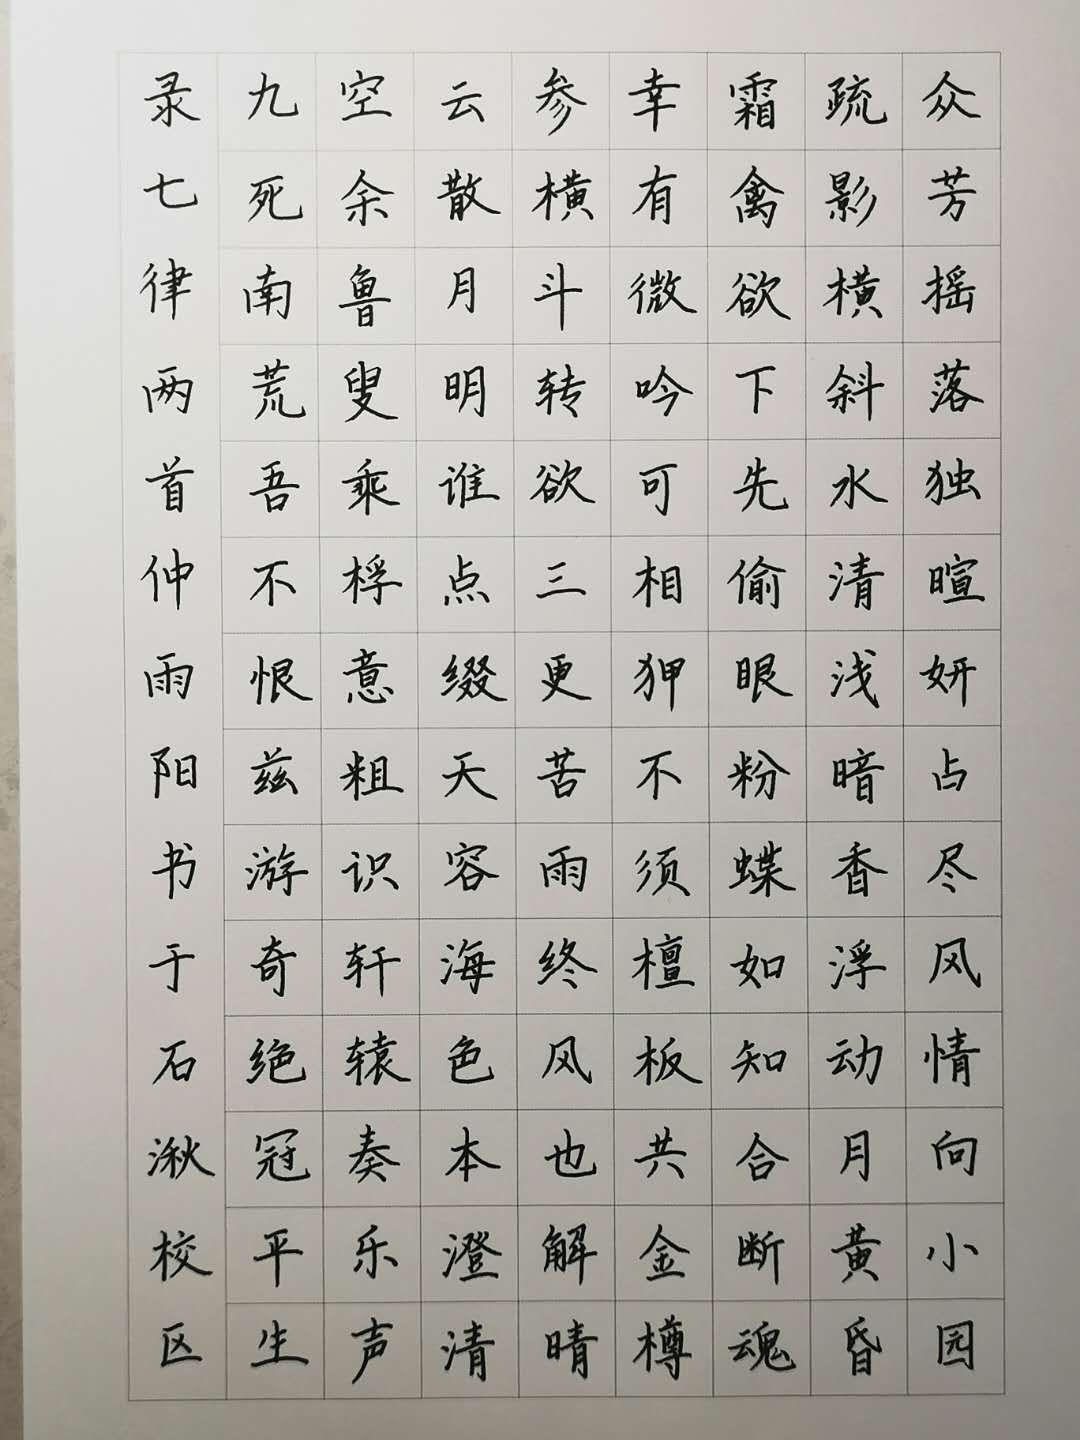 众芳摇落独暄妍占尽风情向小园
疏影横斜水清浅暗香浮动月黄昏
霜禽欲下先偷眼粉蝶如知合断魂
幸有微吟可相狎不须檀板共金樽
参横斗转欲三更苦雨终风也解晴
云散月明谁点缀天容海色本澄清
空余鲁叟乘桴意粗识轩辕奏乐声
九死南荒吾不恨兹游奇绝冠平生
录七律两首仲雨阳书于石湫校区